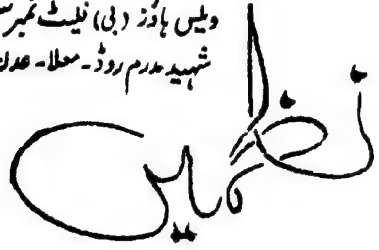 ویلس ہاؤز (بی) فلیٹ نمبر
شہید مدرم روڈ - معلا - عدن
نظمیں